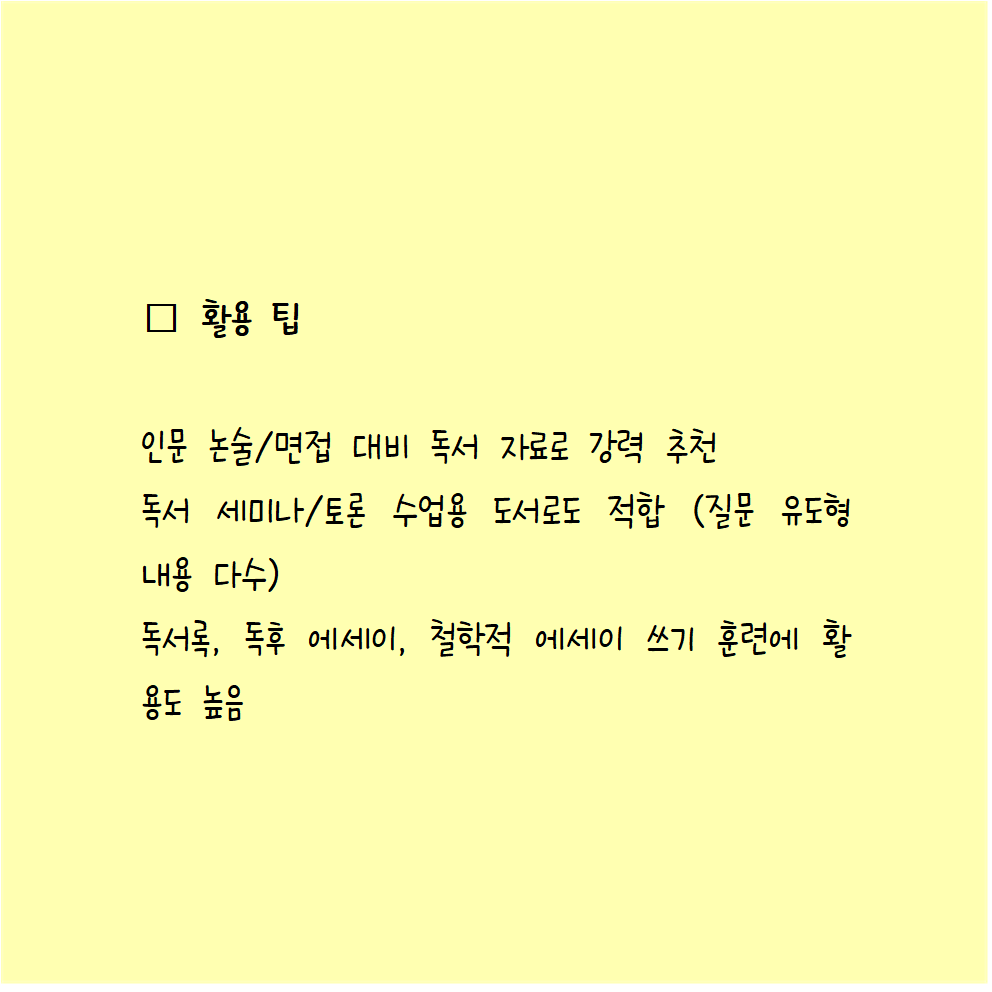 □ 활용 팁
인문 논술/면접 대비 독서 자료로 강력 추천
독서 세미나/토론 수업용 도서로도 적합 (질문 유도형
내용 다수)
독서록, 독후 에세이, 철학적 에세이 쓰기 훈련에 활
용도 높음